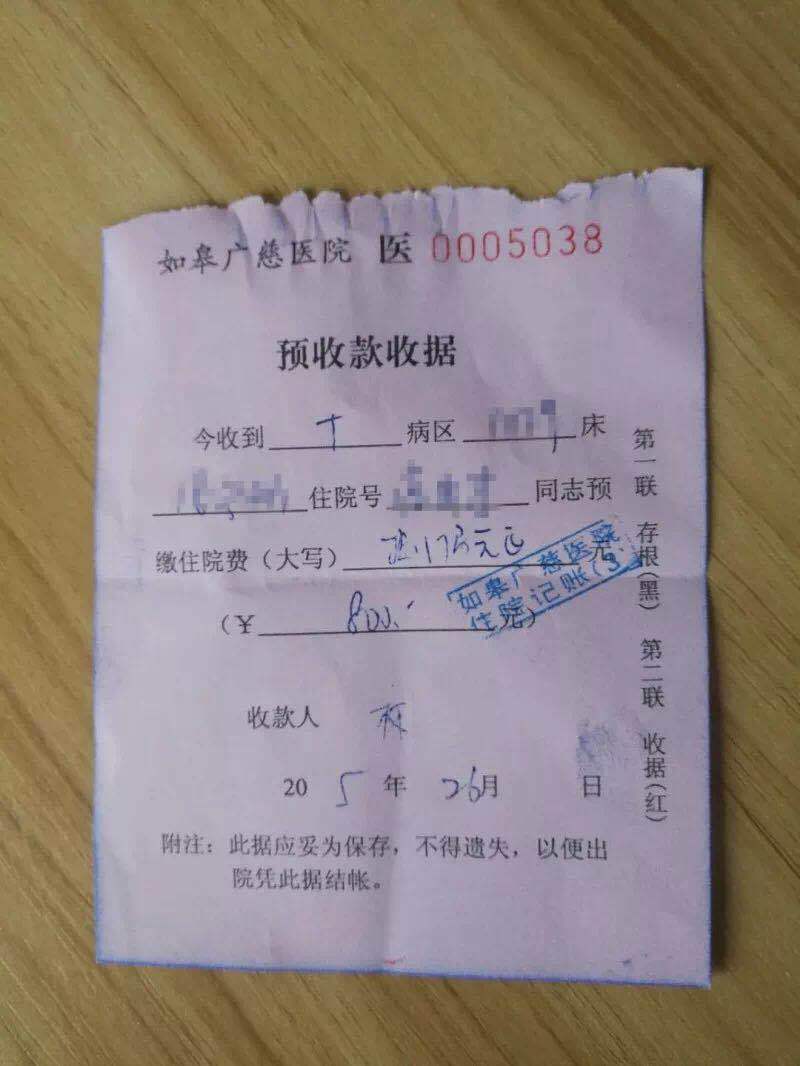 如皋广慈医院 医 0005038
预收款收据
今收到 十 病区 床
住院号 同志预
缴住院费（大写） 元正 元
（¥ 800.- 元）
如皋广慈医院
住院记账(3)
收款人
20 5 年 26 月 日
附注：此据应妥为保存，不得遗失，以便出
院凭此据结帐。
第一联 存根(黑) 第二联 收据(红)